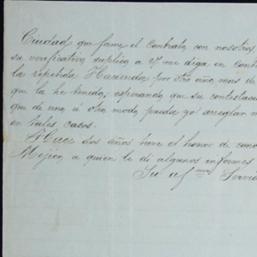 Ciudad que firme el contrato con nosotros,
su verificativo, suplico a V. me diga en cont
la repetida Hacienda por otro año más de
que la he tenido, esperando que su contestac
que de una ú otra modo pueda yo arreglar m
en tales casos.
Hace dos años tuve el honor de cono
Mejico, a quien le dí algunos informes
Su af mo Servid